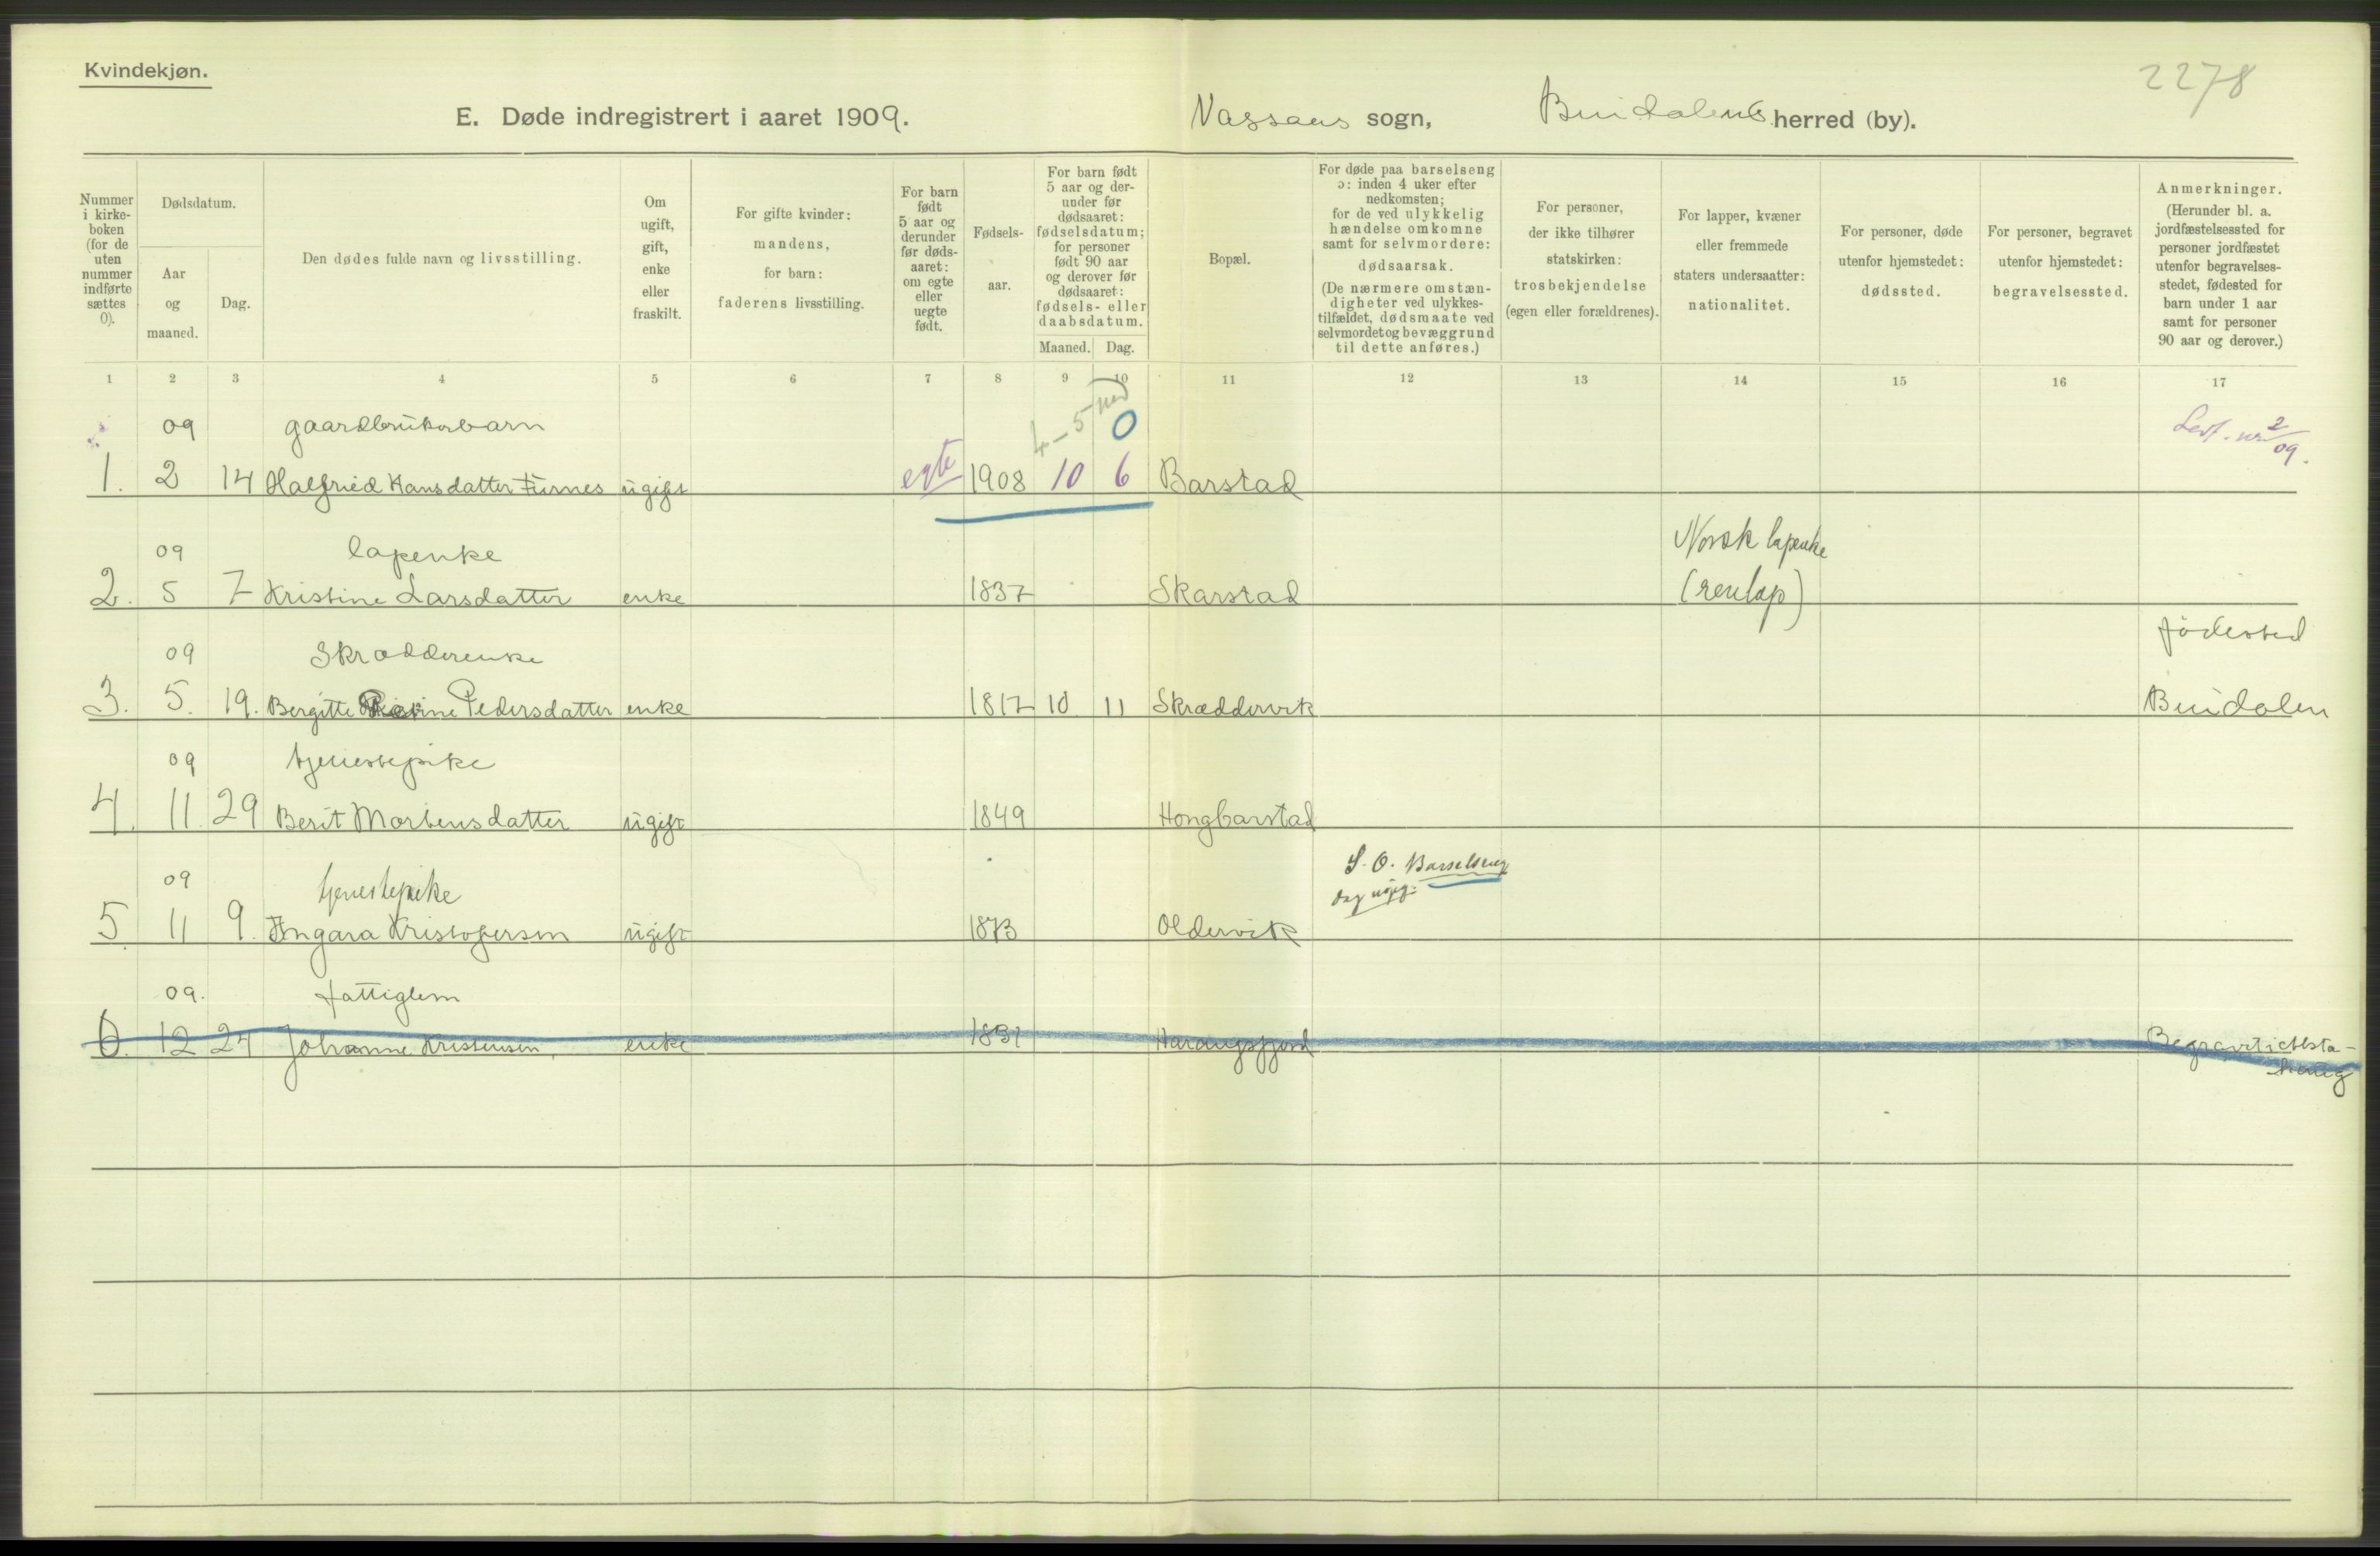 Kvindekjøn.
2278
E. Døde indregistrert i aaret 1909. Vassaas sogn, Bindalens herred (by).
Nummer i kirkeboken (for de uten nummer indførte sættes 0).
Dødsdatum.
Aar og maaned.
Dag.
Den dødes fulde navn og livsstilling.
Om ugift, gift, enke eller fraskilt.
For gifte kvinder: mandens, for barn: faderens livsstilling.
For barn født 5 aar og derunder før dødsaaret: om egte eller uegte født.
Fødselsaar.
For barn født 5 aar og derunder før dødsaaret: fødselsdatum; for personer født 90 aar og derover før dødsaaret: fødsels- eller daabsdatum.
Maaned. Dag.
Bopæl.
For døde paa barselseng ɔ: inden 4 uker efter nedkomsten; for de ved ulykkelig hændelse omkomne samt for selvmordere: dødsaarsak. (De nærmere omstændigheter ved ulykkestilfældet, dødsmaate ved selvmordet og bevæggrund til dette anføres.)
For personer, der ikke tilhører statskirken: trosbekjendelse (egen eller forældrenes).
For lapper, kvæner eller fremmede staters undersaatter: nationalitet.
For personer, døde utenfor hjemstedet: dødssted.
For personer, begravet utenfor hjemstedet: begravelsessted.
Anmerkninger. (Herunder bl. a. jordfæstelsessted for personer jordfæstet utenfor begravelsesstedet, fødested for barn under 1 aar samt for personer 90 aar og derover.)
1 2 3 4 5 6 7 8 9 10 11 12 13 14 15 16 17
09 gaardbrukerbarn 4-5 0
1. 2 14 Halfried Hansdatter Furnes ugift egte 1908 10 6 Barstad
09 lapenke Norsk lapenke
2. 5 7 Kristine Larsdatter enke 1837 Skarstad (renlap)
09 Skrædderenke fødested
3. 5. 19. Bergitte Pedersdatter enke 1817 10 11 Skræddervik Bindalen
09 tjenestepike
4. 11. 29 Berit Mortensdatter ugift 1849 Hongbarstad
09 tjenestepike S. O. Barselseng
5 11 9. Ingara Kristofersen ugift 1873 Oldervik
09. fattiglem
12 24 Johanne Kristensen, enke 1837 Harangsfjord